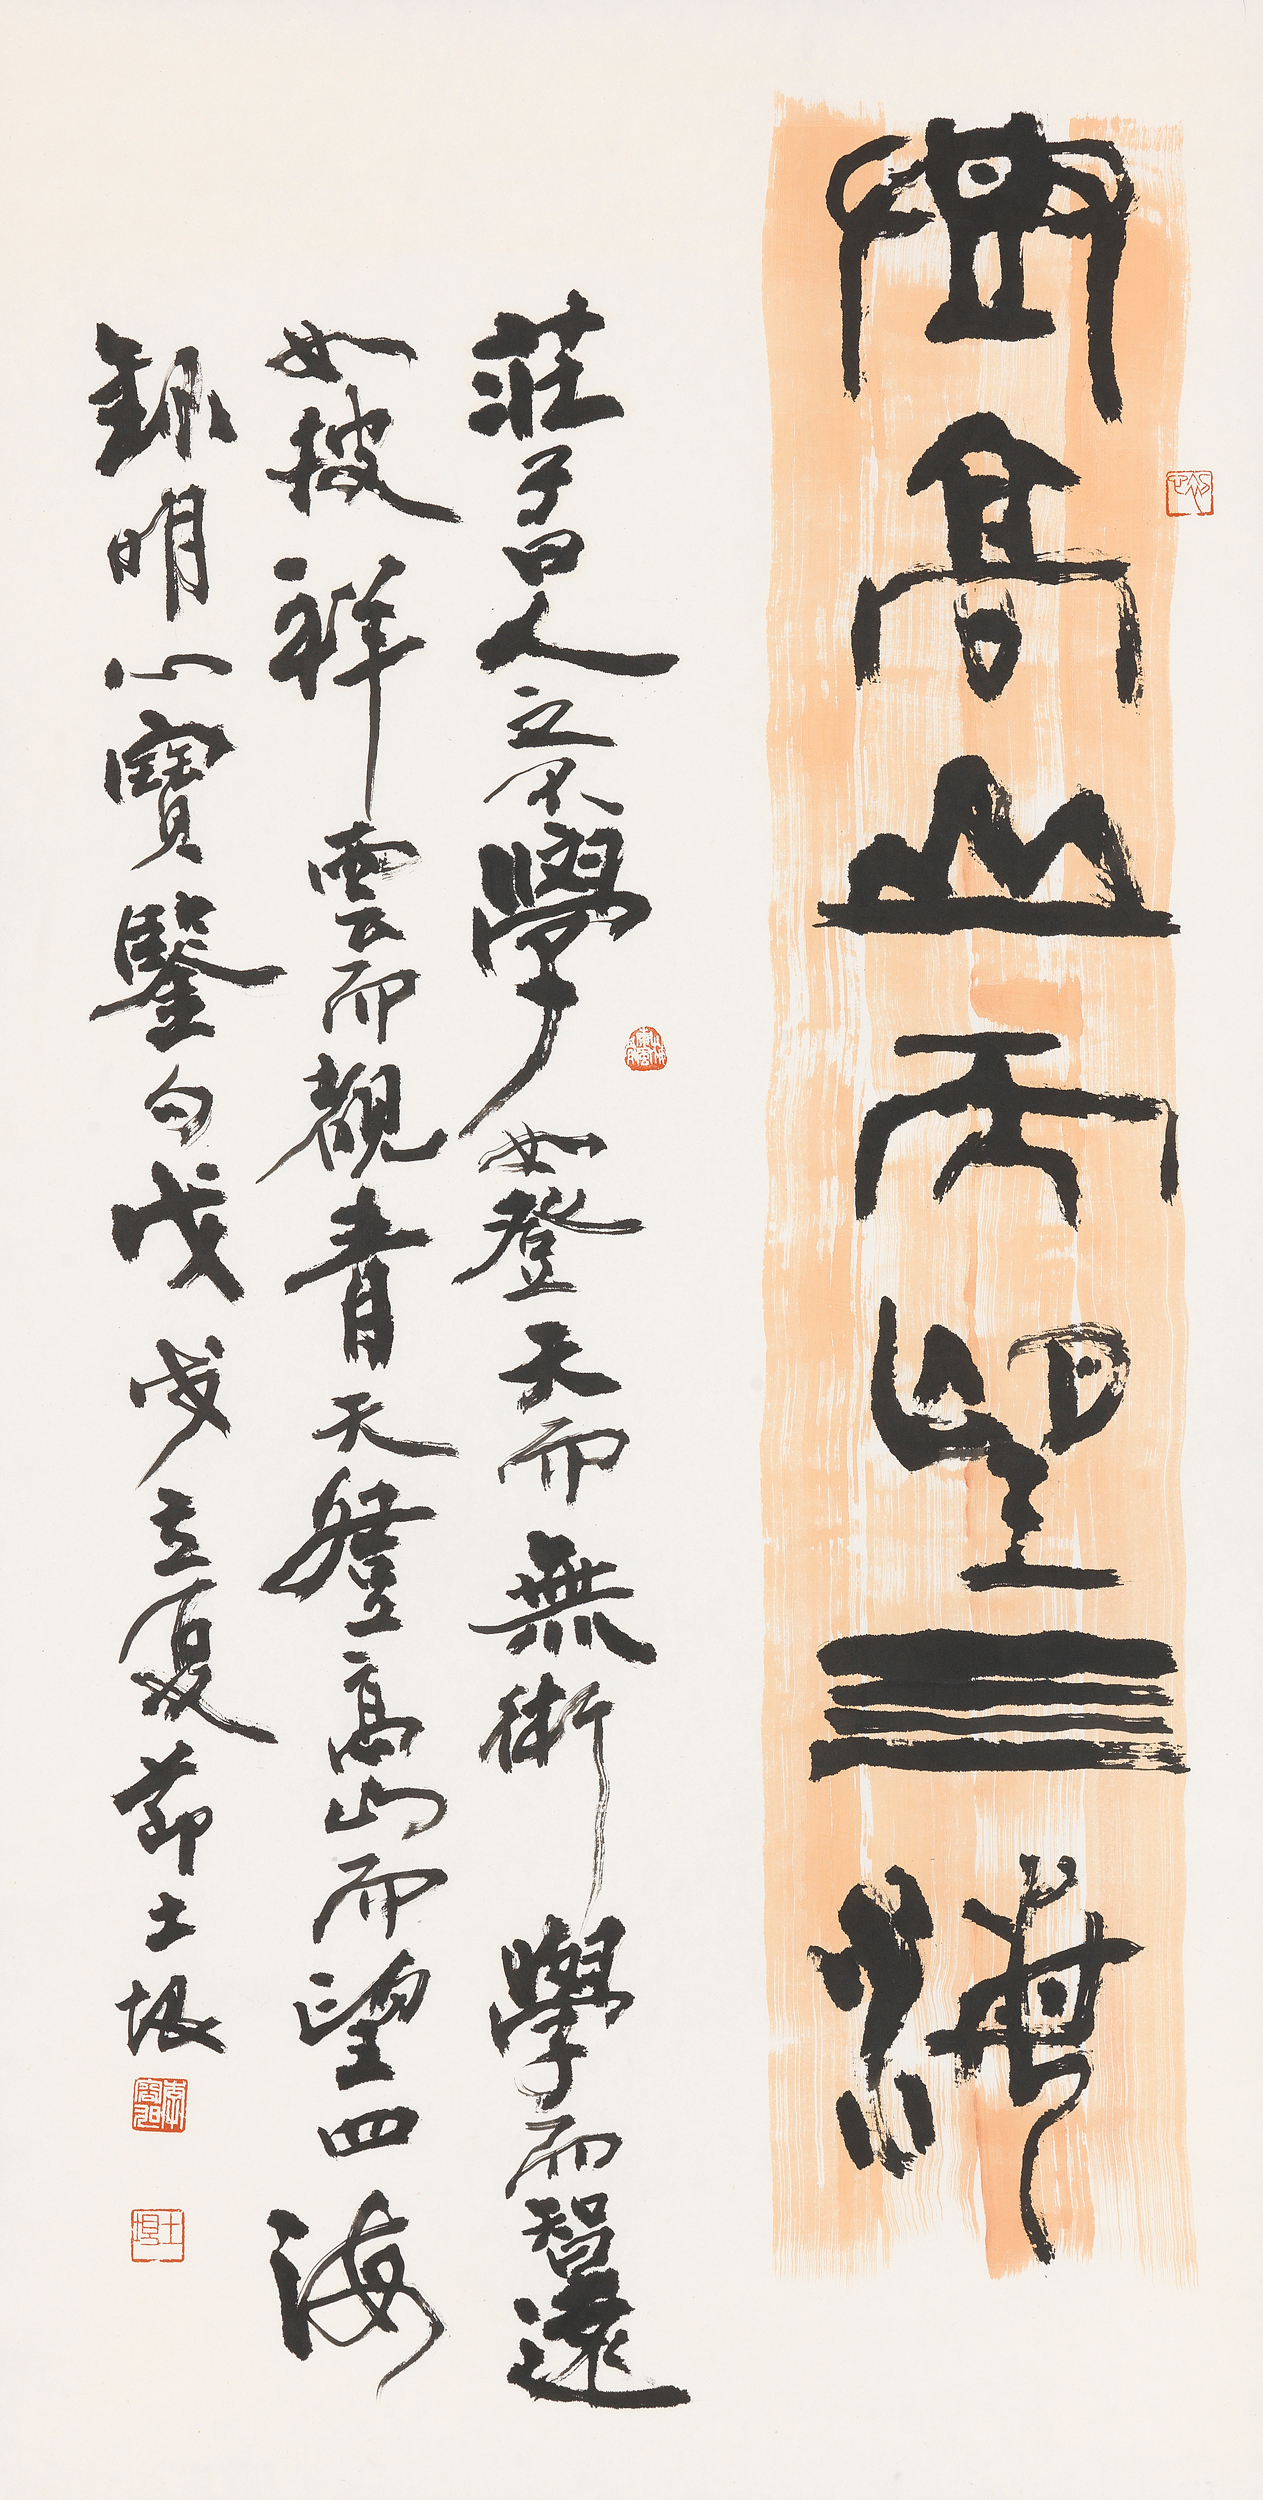 登高山而望三海
莊子曰人之不學如登天而無術學而智遠
如披祥雲而覩青天登高山而望四海
錄明心寶鑒句戊戌立夏節土垠